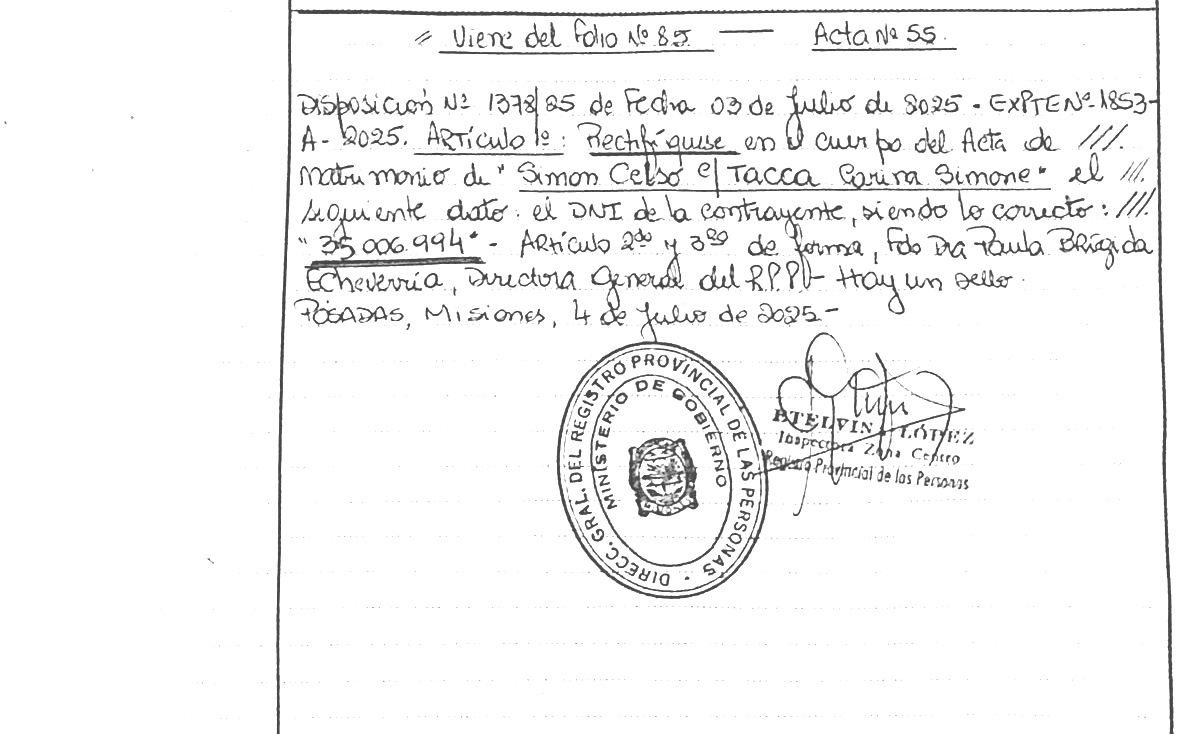 // Viene del Folio Nº 85 — Acta Nº 55.
Disposición Nº 1378/25 de Fecha 03 de Julio de 2025 - EXPTE Nº 1853-
A - 2025. ARTÍCULO 1º: Rectifíquese en el cuerpo del Acta de ///.
Matrimonio de "Simon Celso c/ Tacca Carina Simone" el ///.
siguiente dato: el DNI de la contrayente, siendo lo correcto: ///.
"35.006.994" - Artículo 2do y 3ro de forma, Fdo Dra Paula Brígida
Echeverría, Directora General del R.P.P. - Hay un sello.
POSADAS, Misiones, 4 de Julio de 2025 -
DIRECC. GRAL. DEL REGISTRO PROVINCIAL DE LAS PERSONAS
MINISTERIO DE GOBIERNO
LÓPEZ
Inspectora Zona Centro
Registro Provincial de las Personas